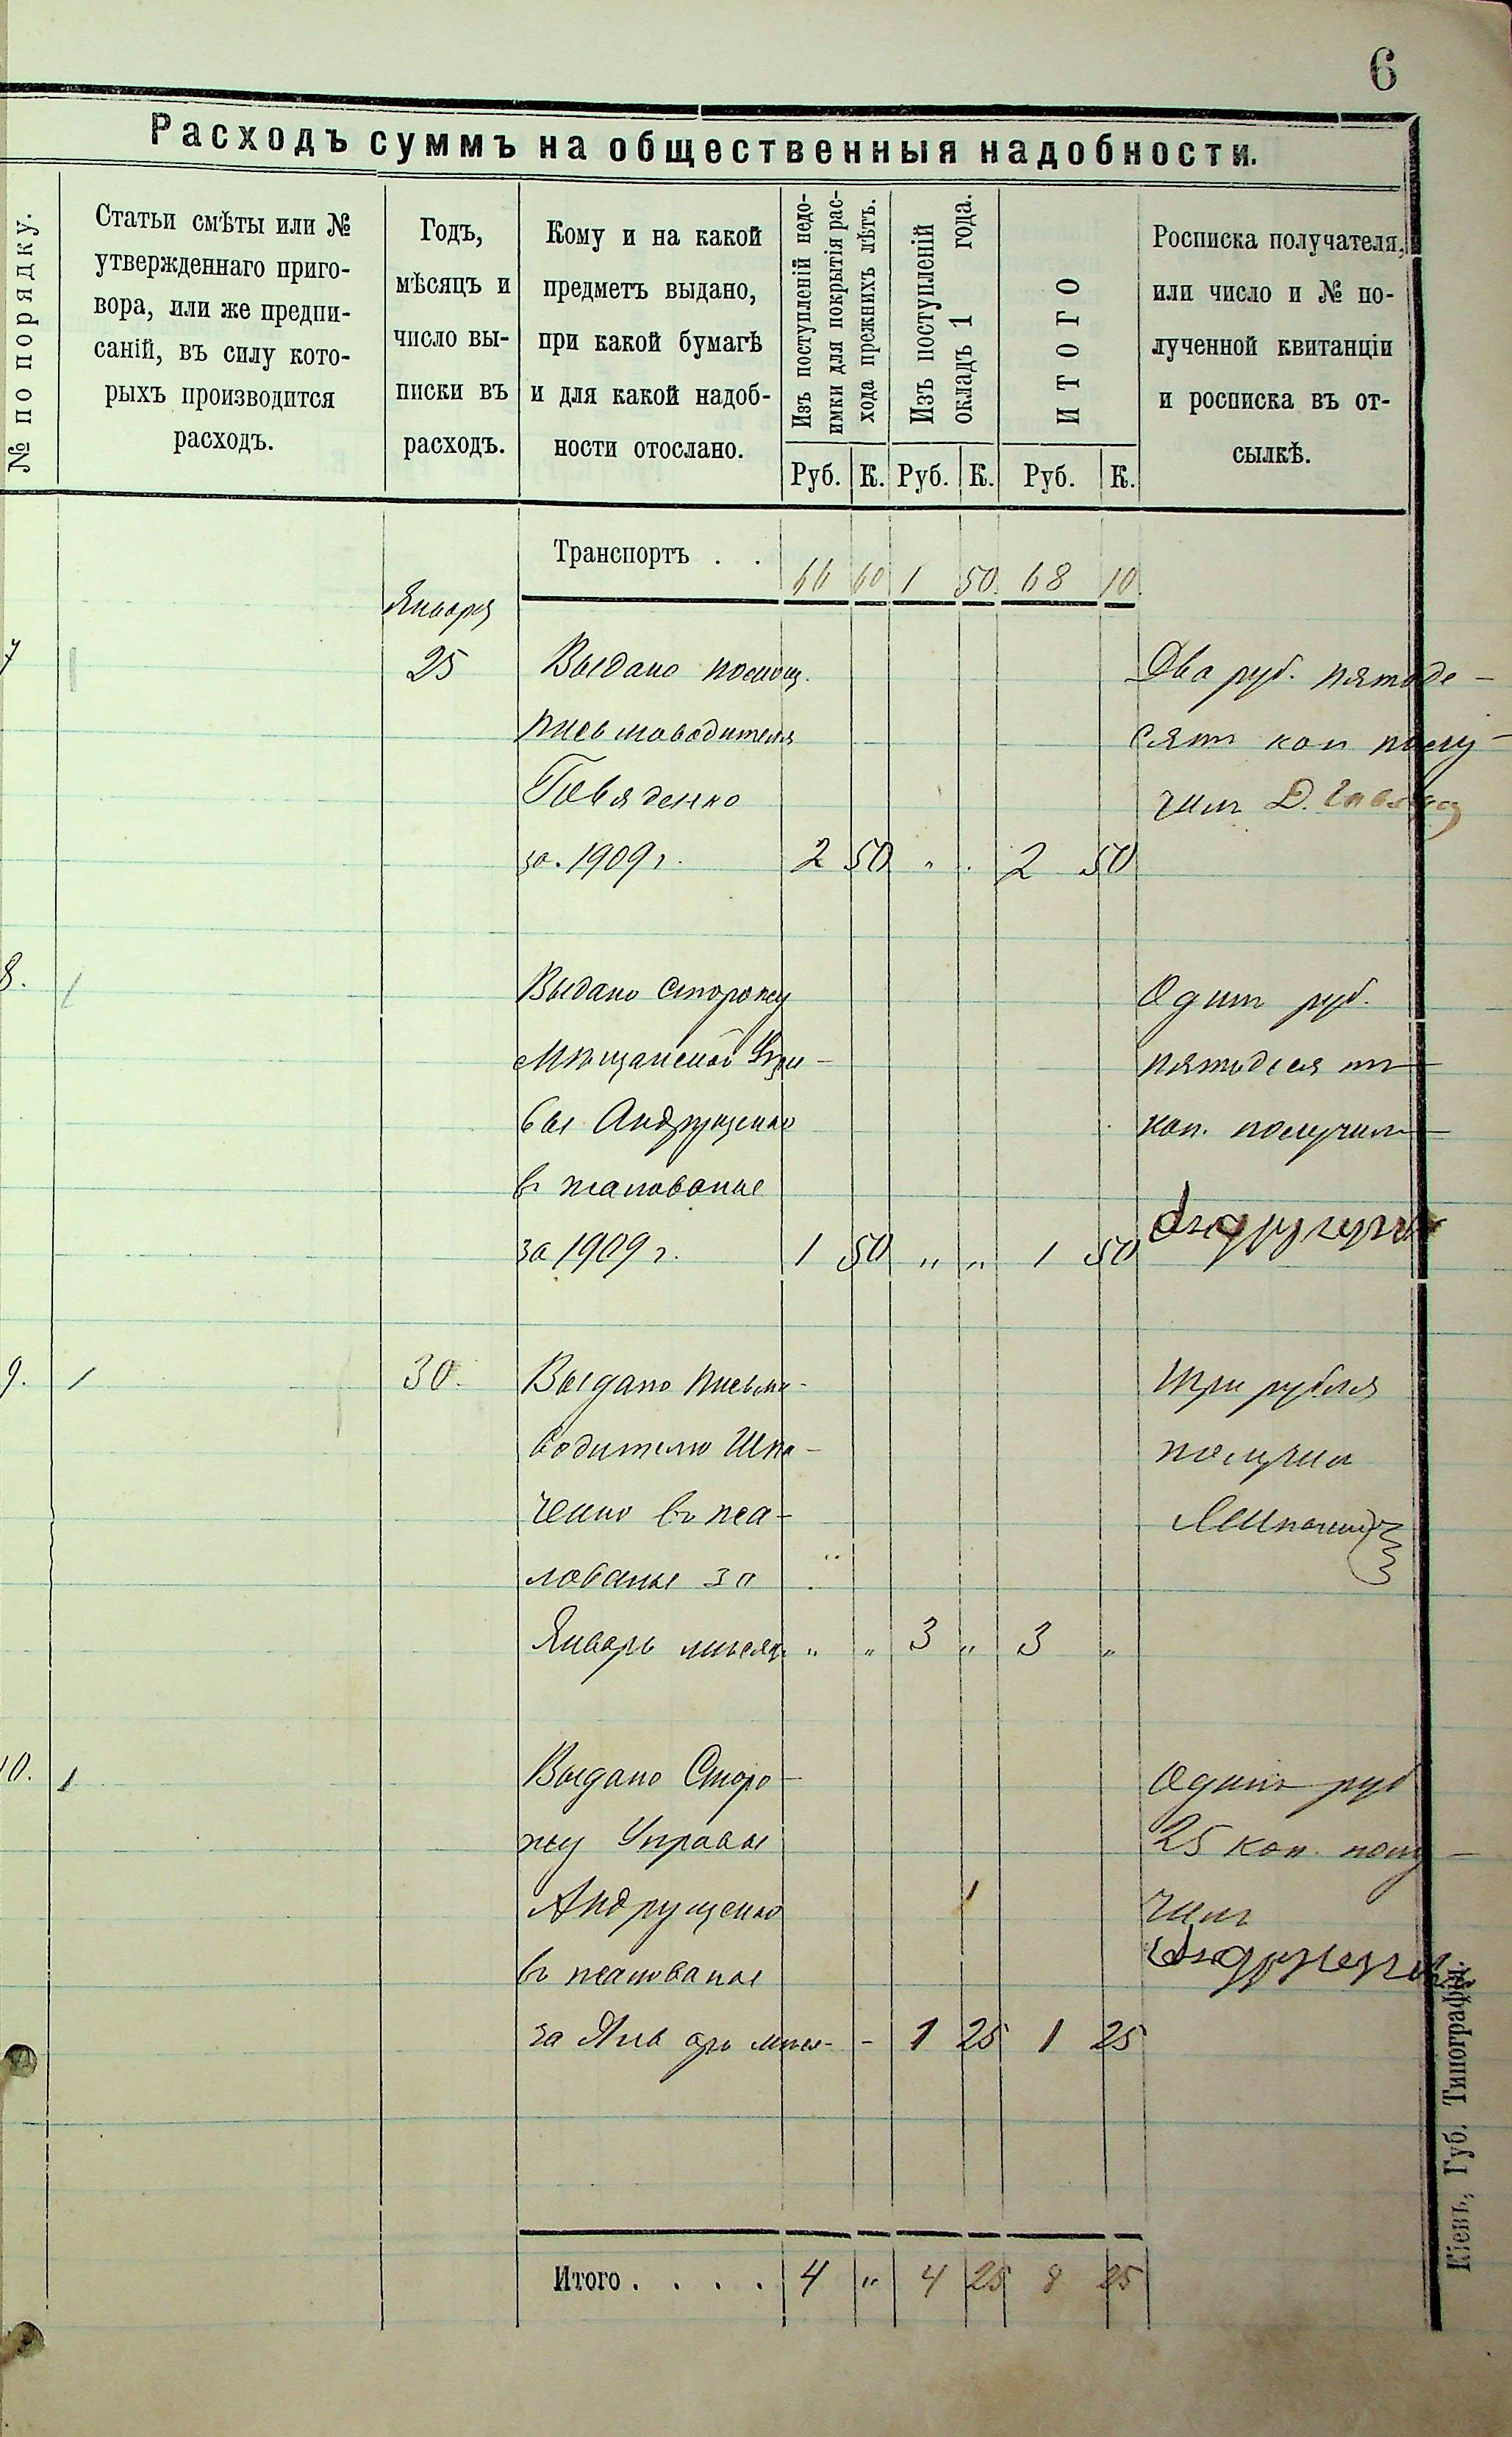 6
Расходъ суммъ на общественныя надобности.
№ по порядку.
Статьи смѣты или №
утвержденнаго приго-
вора, или же предпи-
саній, въ силу кото-
рыхъ производится
расходъ.
Годъ,
мѣсяцъ и
число вы-
писки въ
расходъ.
Кому и на какой
предметъ выдано,
при какой бумагѣ
и для какой надоб-
ности отослано.
Изъ поступленій недо-
имки для покрытія рас-
хода прежнихъ лѣтъ.
Изъ поступленій
окладъ 1 года.
ИТОГО
Росписка получателя,
или число и № по-
лученной квитанціи
и росписка въ от-
сылкѣ.
Руб. К. Руб. К. Руб. К.
Транспортъ . . 66 60 1 50 68 10
Января
7 25 Выдано помощ.
письмоводителя
за 1909 г. 2 50 " . 2 50
Два руб. пятьде-
сятъ коп полу-
чилъ Д.
8. 1 Выдано сторожу
Мѣщанской Упра-
вы Андрущенко
въ жалованье
за 1909 г. 1 50 " " 1 50
Одинъ руб.
пятьдесятъ
коп. получилъ
9. 1 30. Выдано письмо-
водителю
ченко въ жа-
лованье за
Январь мѣсяцъ " " 3 " 3 "
Три рубля
получил
10. 1 Выдано Сторо-
жу Управы
Андрущенко
въ жалованье
за Январь мѣся- - 1 25 1 25
Одинъ руб
25 коп. полу-
чилъ
Итого . . . . 4 " 4 25 8 25
Кіевъ, Губ. Типографія.